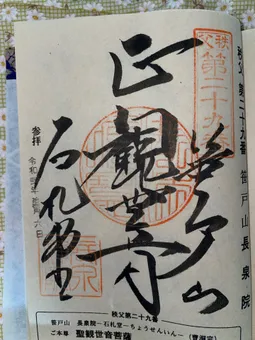 秩父第二十九番 笹戸山長泉院
秩父
第二十九
笹戸山
正観世音
石札堂
参拝
令和
秩父第二十九番
笹戸山 長泉院―石札堂―ちょうせんいん―
ご本尊 聖観世音菩薩